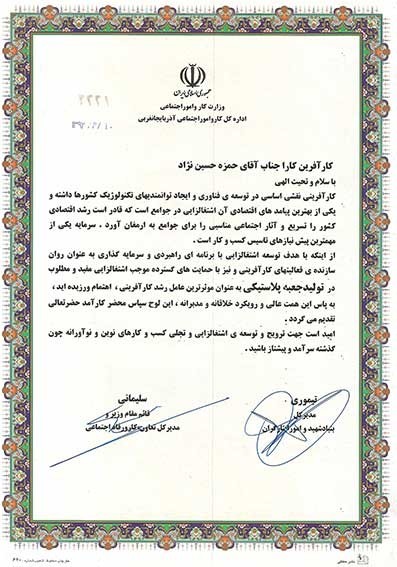 جمهوری اسلامی ایران
وزارت کار و امور اجتماعی
اداره کل کار و امور اجتماعی آذربایجانغربی
کارآفرین کارا جناب آقای حمزه حسین نژاد
با سلام و تحیت الهی
کارآفرینی نقشی اساسی در توسعه ی فناوری و ایجاد توانمندیهای تکنولوژیک کشورها داشته و
یکی از بهترین پیامد های اقتصادی آن اشتغالزایی در جوامع است که قادر است رشد اقتصادی
کشور را تسریع و آثار اجتماعی مناسبی را برای جوامع به ارمغان آورد . سرمایه یکی از
مهمترین پیش نیازهای تاسیس کسب و کار است .
از اینکه با هدف توسعه اشتغالزایی با برنامه ای راهبردی و سرمایه گذاری به عنوان روان
سازنده ی فعالیتهای کارآفرینی و نیز با حمایت های گسترده موجب اشتغالزایی مفید و مطلوب
در تولیدجعبه پلاستیکی به عنوان موثرترین عامل رشد کارآفرینی ، اهتمام ورزیده اید ،
به پاس این همت عالی و رویکرد خلاقانه و مدبرانه ، این لوح سپاس محضر کارآمد حضرتعالی
تقدیم می گردد .
امید است جهت ترویج و توسعه ی اشتغالزایی و تجلی کسب و کارهای نوین و نوآورانه چون
گذشته سرآمد و پیشتاز باشید .
تیموری
مدیرکل
بنیادشهید و امور ایثارگران
سلیمانی
قائم مقام وزیر و
مدیرکل تعاون،کارورفاه اجتماعی